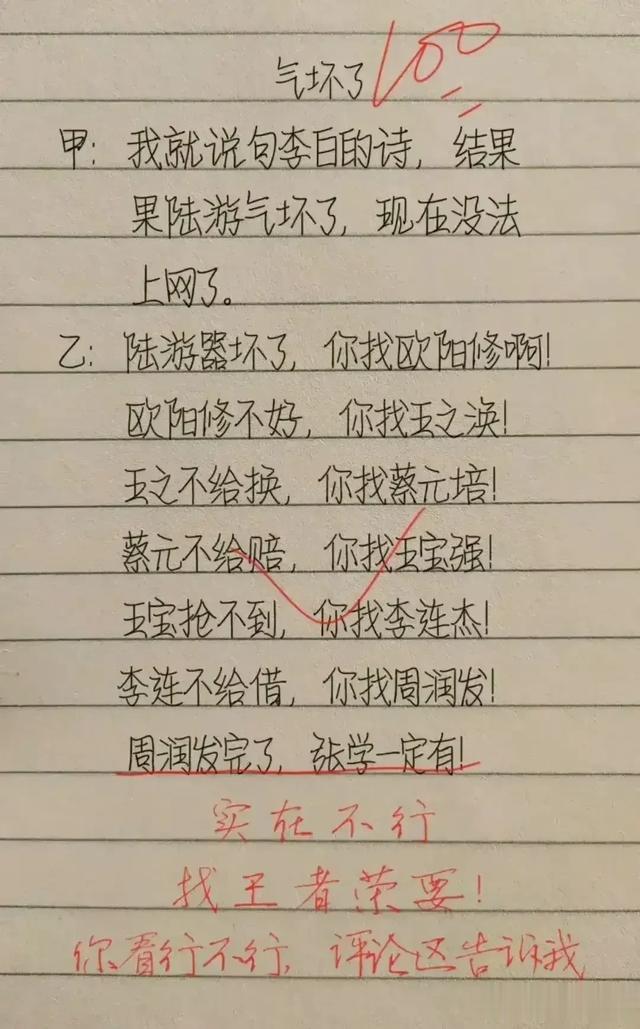 气坏了 100
甲：我就说句李白的诗，结果
果陆游气坏了，现在没法
上网了。
乙：陆游器坏了，你找欧阳修啊！
欧阳修不好，你找王之涣！
王之不给换，你找蔡元培！
蔡元不给赔，你找王宝强！
王宝抢不到，你找李连杰！
李连不给借，你找周润发！
周润发完了，张学一定有！
实在不行
找王者荣要！
你看行不行，评论区告诉我